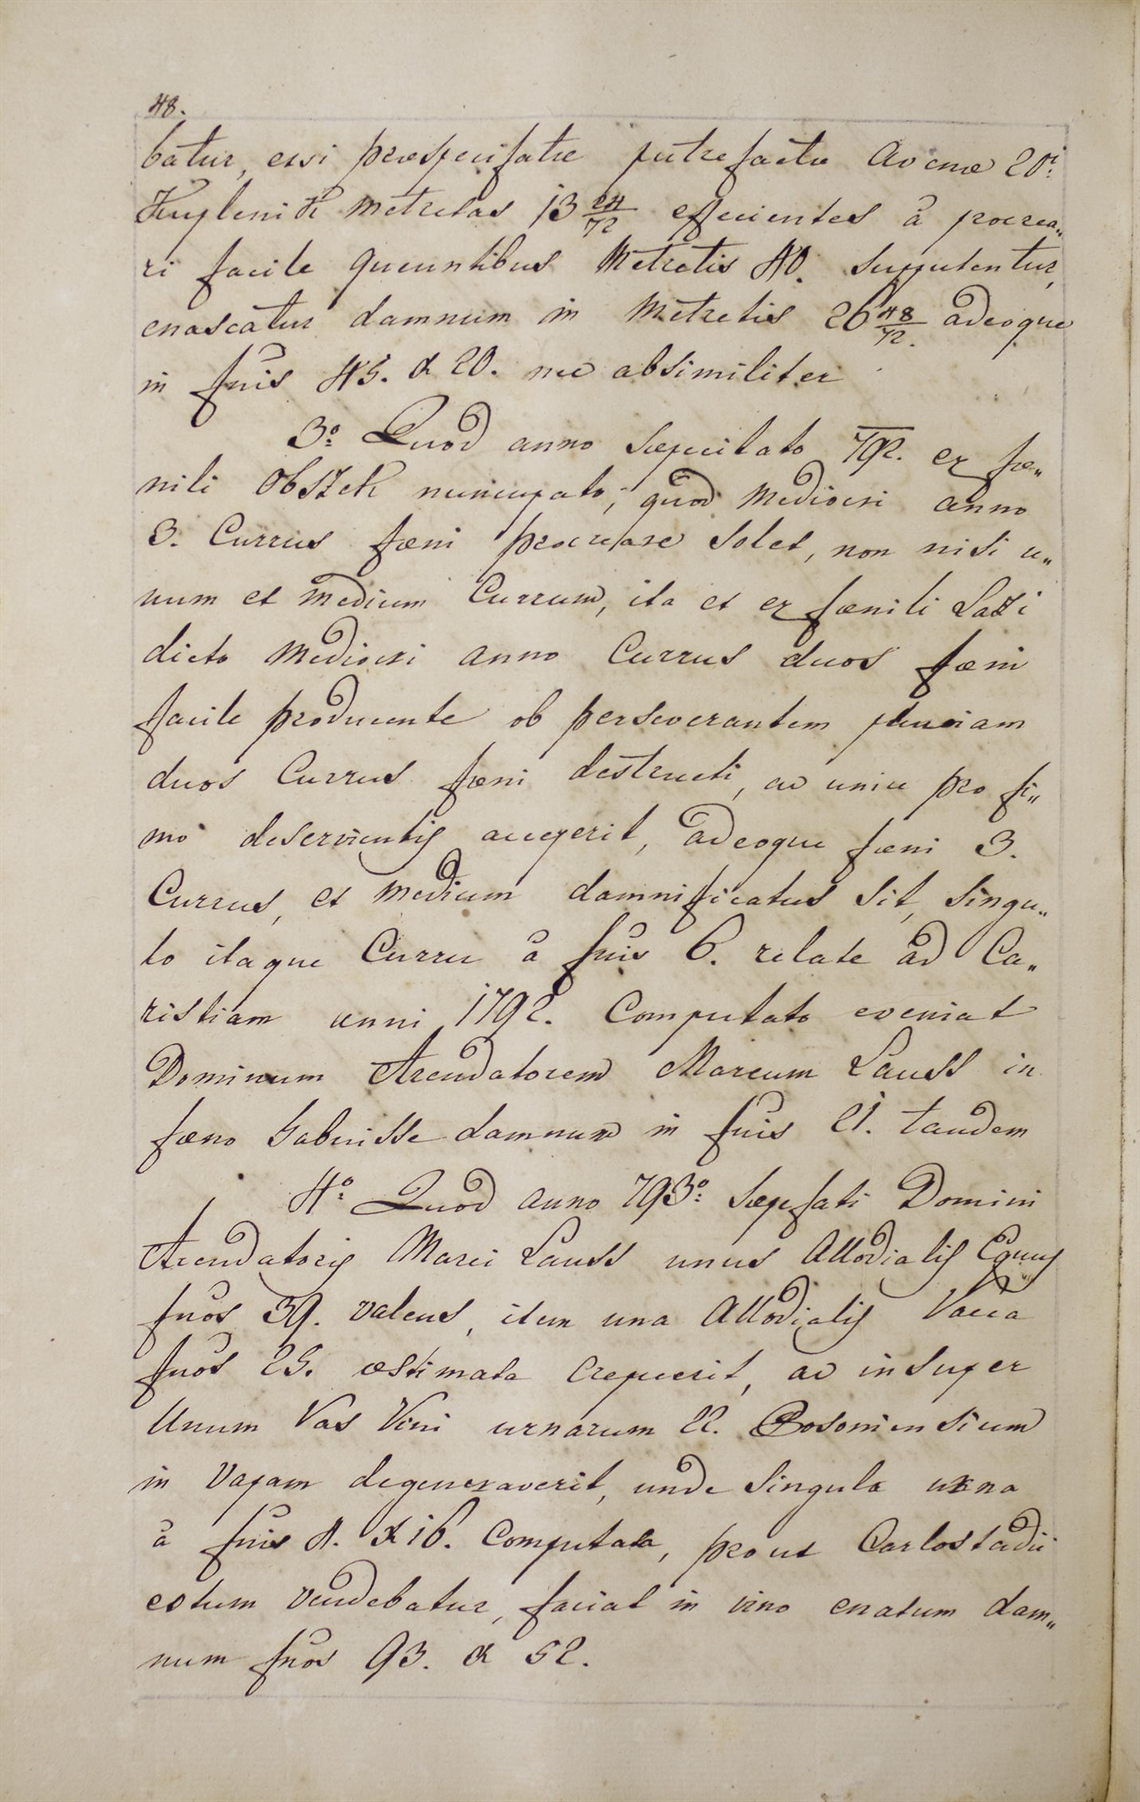 48.
batur, eisi præspecifatæ putrefactæ avenæ 20i
Kuplenik metretas 13 24/72 efficientes à procrea„
ri facile queuntibus Metretis 40. supputentur,
enascatur damnum in Metretis 26 48/72. adeoque
in fnis 45. x 20. nec absimiliter
3o Quod anno sæpecitato 792. ex fæ„
nili Obszek nuncupato, quod mediocri anno
3. Currus fæni procreare solet, non nisi u„
num et medium Currum, ita et ex fænili Lazi
dicto mediocri anno Currus duos fæni
facile producente ob perseverantem pluviam
duos Currus fæni destructi, ac unice pro fi„
mo deservientis acceperit, adeoque fæni 3.
Currus, et medium damnificatus sit, singu„
lo itaque Curru à fnis 6. relate ad Ca„
ristiam anni 1792. Computato eveniat
Dominum Arendatorem Marcum Lauss in
fæno habuisse damnum in fnis 21. tandem
4o Quod anno 793o sæpefati Domini
Arendatoris Marci Lauss unus Allodialis Equus
fnos 39. valens, item una Allodialis Vacca
fnos 25. æstimata crepuerit, ac insuper
Unum Vas Vini urnarum 22. Posoniensium
in Vapam degeneraverit, unde singula urna
à fnis 4. x 16. Computata, prout Carlostadii
estum vendebatur, faciat in vino enatum dam„
num fnos 93. x 52.